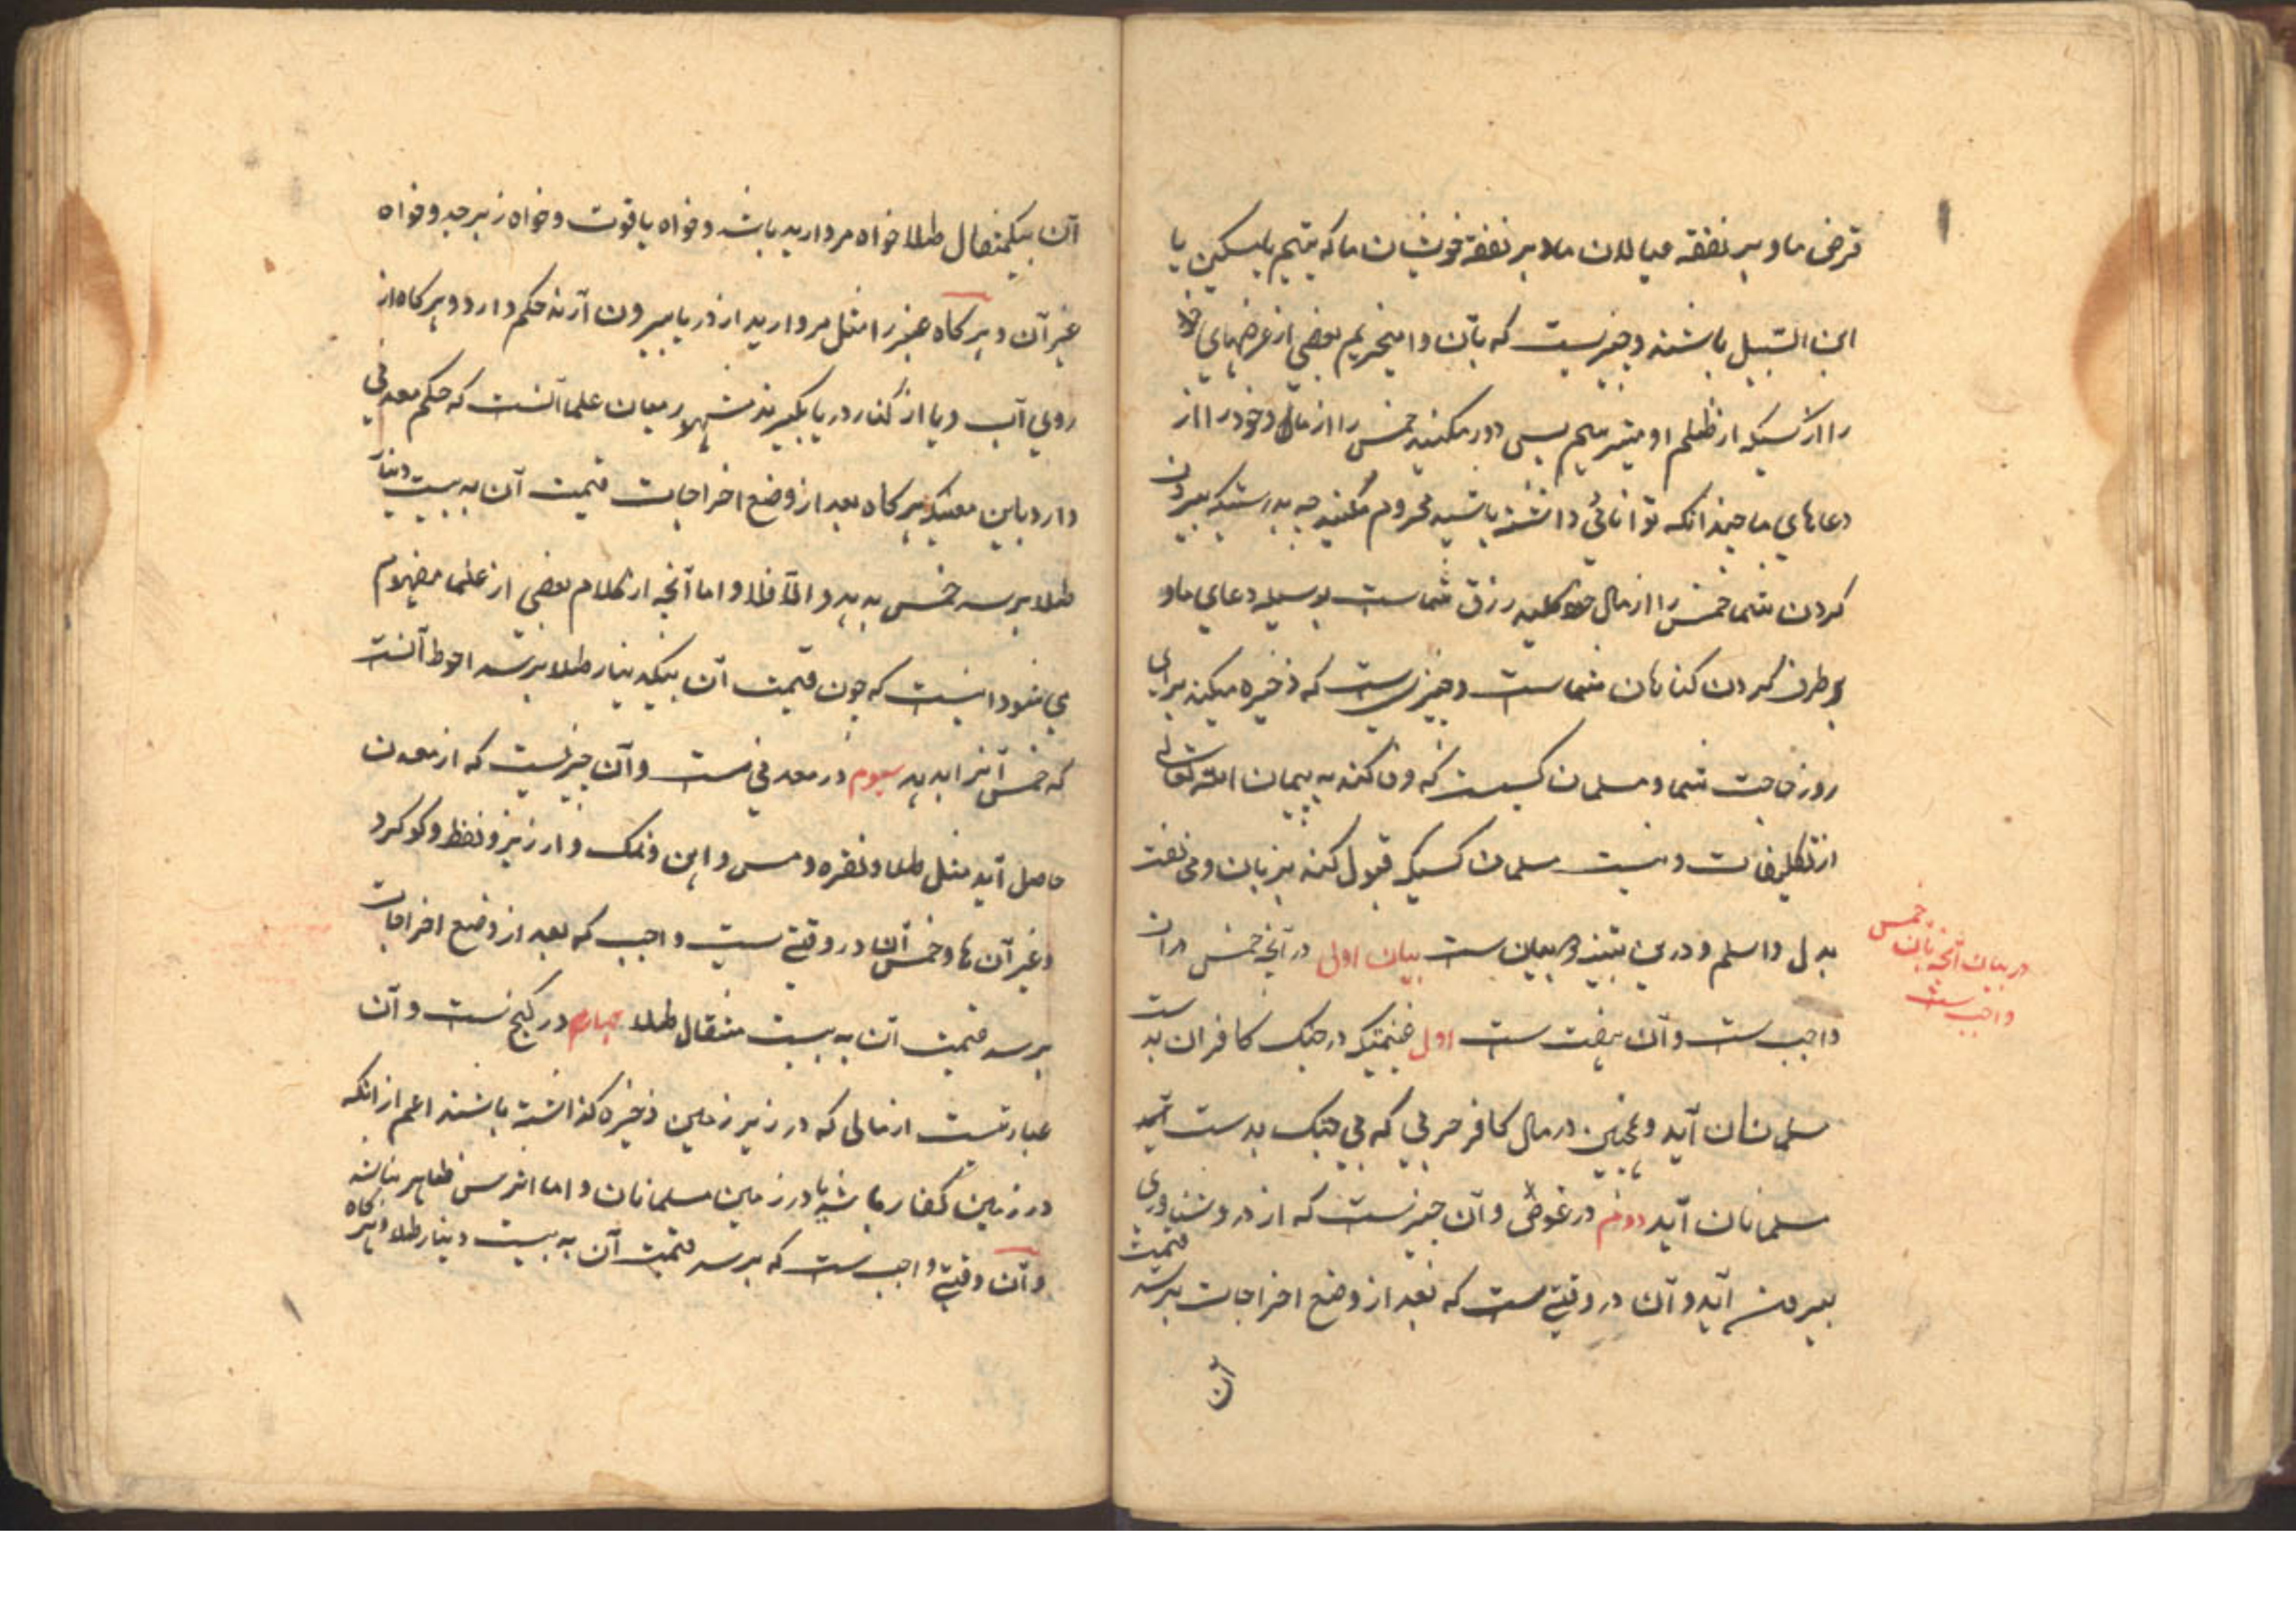 قرض ما و بر نفقه عیالان ما و بر نفقه خویشان ما که یتیم یا مسکین یا
ابن السّبیل باشند و چیزیست که بآن وامیخریم بعضی از عرضهای خود
را از کسیکه از ظلم او میترسیم پس دور مکنید خمس را از مال و خود را از
دعاهای ما چندانکه توانائی داشته باشید محروم مکنید چه بدرستیکه بیرون
کردن شما خمس را از مال خود کلید رزق شماست بوسیله دعای ما و
برطرف کردن کناهان شماست و چیزیست که ذخیره میکند برای
روز حاجت شما و مسلمان کسیست که وفا کند به پیمان الله تعالی
از تکلیفات و نیست مسلمان کسیکه قبول کند بزبان و مخالفت
بدل والسلم و درین بیان ست بیان اولی در آنچه خمس در آن
واجب ست و آن هفت ست اول غنیمتیکه در جنک کافران بدست
مسلمانان آید و همچنین در مال کافر حربی که بی جنک بدست
مسلمانان آید دوم در غوص و آن چیزیست که از در و شناوری
بیرون آید و آن در وقتیست که بعد از وضع اخراجات برسد قیمت
آن
در بیان آنچه بآن خمس
واجب ست
آن بیکمثقال طلا خواه مروارید باشد و خواه یاقوت و خواه زبرجد و خواه
غیر آن و هر کاه عنبر را مثل مروارید از دریا بیرون آرند حکم دارد و هر کاه از
روی آب و یا از کنار دریا بکیرند مشهور میان علما آنست که حکم معدنی
دارد باین معنیکه هر کاه بعد از وضع اخراجات قیمت آن به بیست دینار
طلا برسد خمس بدهد و الّا فلا و اما آنچه از کلام بعضی از علما مفهوم
می شود اینست که چون قیمت آن بیکدینار طلا برسد احوط آنست
که خمس آنرا بدهد سیوم در معدنی ست و آن چیزیست که از معدن
حاصل آید مثل طلا و نقره و مس و آهن و نمک و ارزیز و نفط و کوکرد
و غیر آن ها و خمس آن در وقتی ست واجب که بعد از وضع اخراجات
برسد قیمت آن به بیست مثقال طلا چهارم در کنج ست و آن
عبارتست از مالی که در زیر زمین ذخیره کذاشته باشند اعم از آنکه
در زمین کفار باشد یا در زمین مسلمانان و اما اثرش ظاهر نباشد
و آن وقتی واجب ست که برسد قیمت آن به بیست دینار طلا و هر کاه